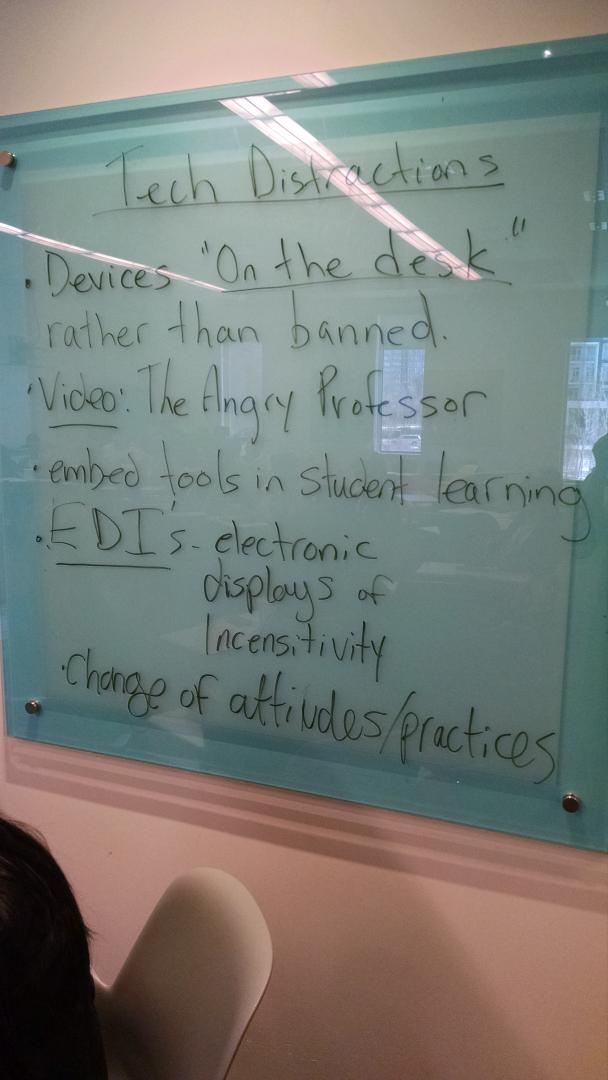 Tech Distractions
· Devices "On the desk"
rather than banned.
· Video: The Angry Professor
· embed tools in student learning
· EDI's - electronic
displays of
Incensitivity
· Change of attitudes/practices